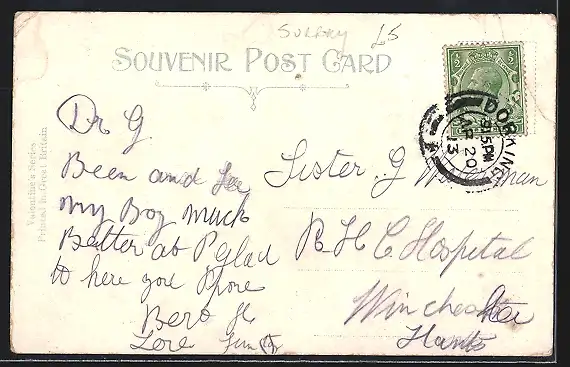 SURREY £5
SOUVENIR POST CARD
Valentine's Series
Printed in Great Britain
Dr G
Been and See
my Boy much
Better at P Glad
to here you
Bert
Love
Sister G
R H C Hospital
Winchester
Hants
DORKING
9 15 PM
AP 20
13